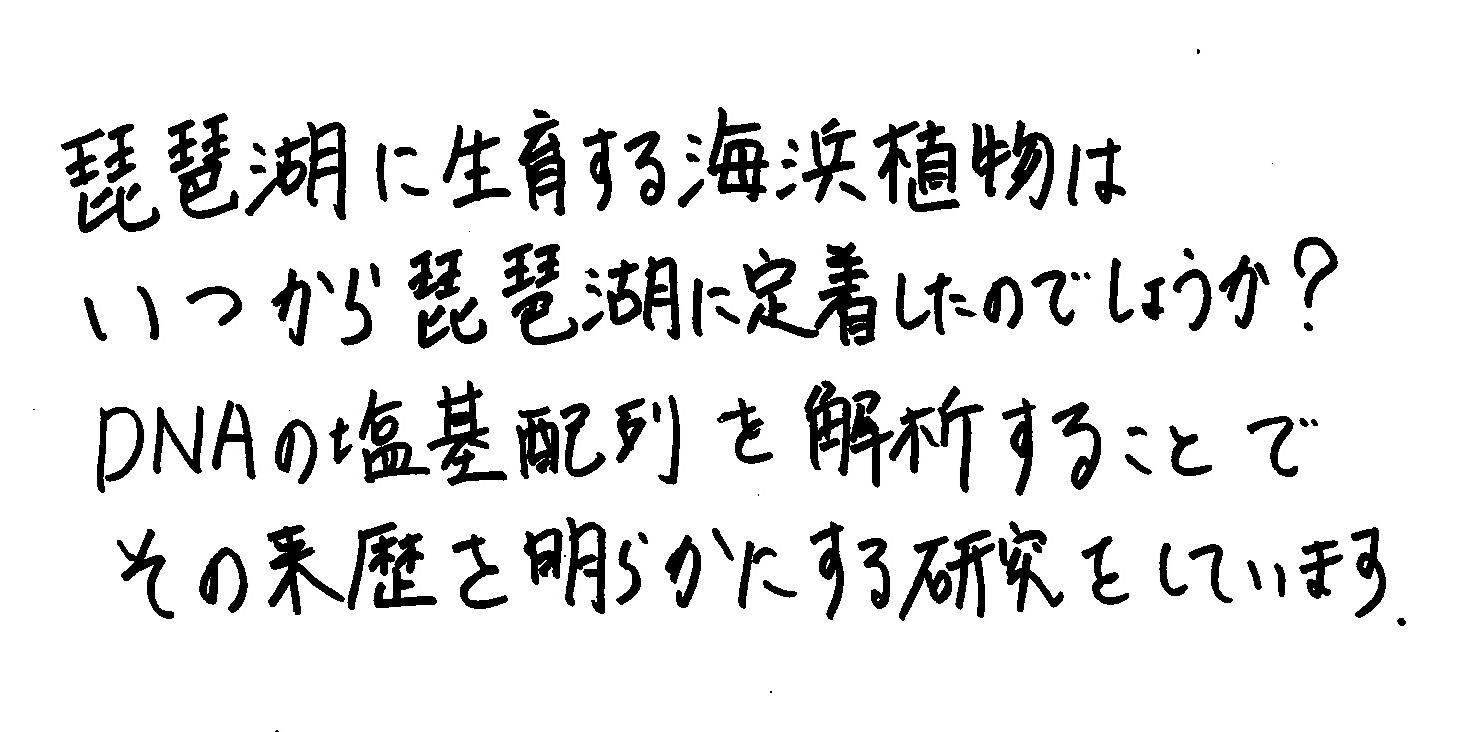 琵琶湖に生育する海浜植物は
いつから琵琶湖に定着したのでしょうか?
DNAの塩基配列を解析することで
その来歴を明らかにする研究をしています.